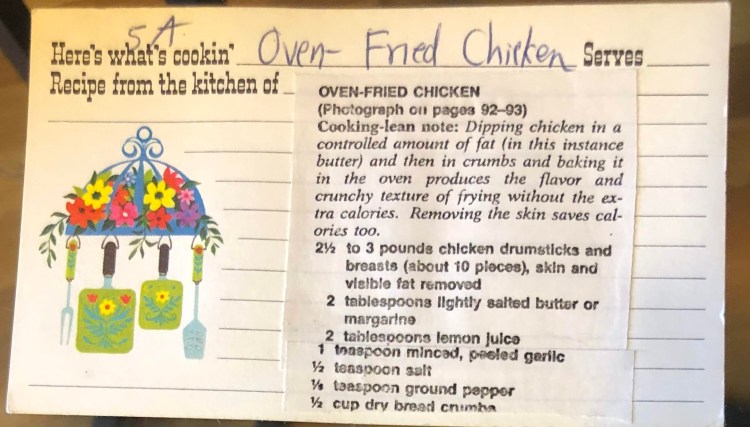 5A
Here's what's cookin' Oven-Fried Chicken Serves
Recipe from the kitchen of
OVEN-FRIED CHICKEN
(Photograph on pages 92–93)
Cooking-lean note: Dipping chicken in a
controlled amount of fat (in this instance
butter) and then in crumbs and baking it
in the oven produces the flavor and
crunchy texture of frying without the ex-
tra calories. Removing the skin saves cal-
ories too.
2½ to 3 pounds chicken drumsticks and
breasts (about 10 pieces), skin and
visible fat removed
2 tablespoons lightly salted butter or
margarine
2 tablespoons lemon juice
1 teaspoon minced, peeled garlic
½ teaspoon salt
⅛ teaspoon ground pepper
½ cup dry bread crumbs